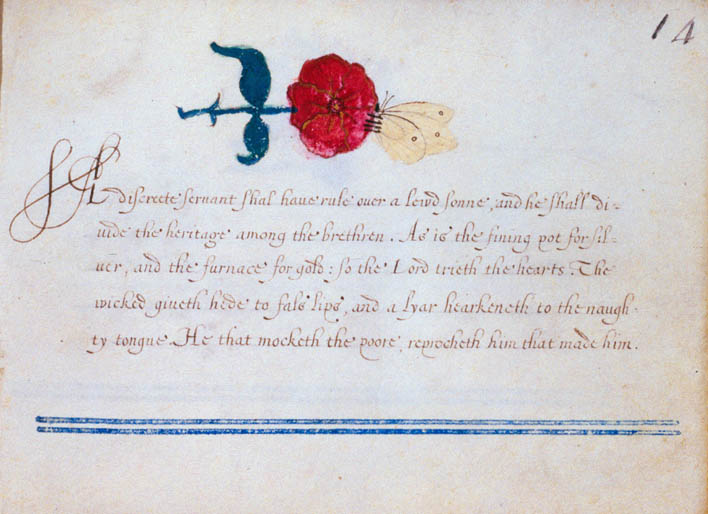 14
A discrete servant shal haue rule ouer a lewd sonne, and he shall di-
uide the heritage among the brethren. As is the fining pot for sil-
uer, and the furnace for gold: so the Lord trieth the hearts. The
wicked giueth hede to fals lips, and a lyar hearkeneth to the naugh-
ty tongue. He that mocketh the poore, reprocheth him that made him.